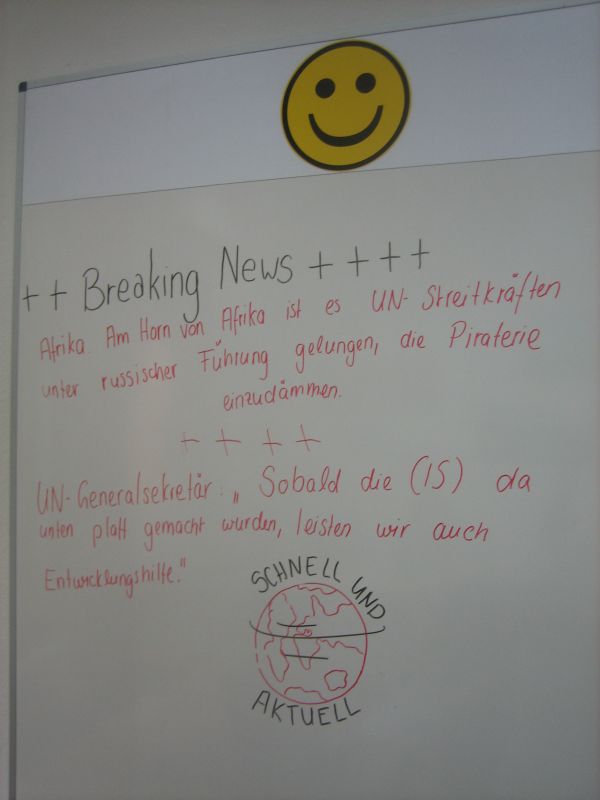 ++ Breaking News ++++
Afrika. Am Horn von Afrika ist es UN-Streitkräften
unter russischer Führung gelungen, die Piraterie
einzudämmen.
++++
UN-Generalsekretär: „Sobald die (IS) da
unten platt gemacht wurden, leisten wir auch
Entwicklungshilfe."
SCHNELL UND
AKTUELL